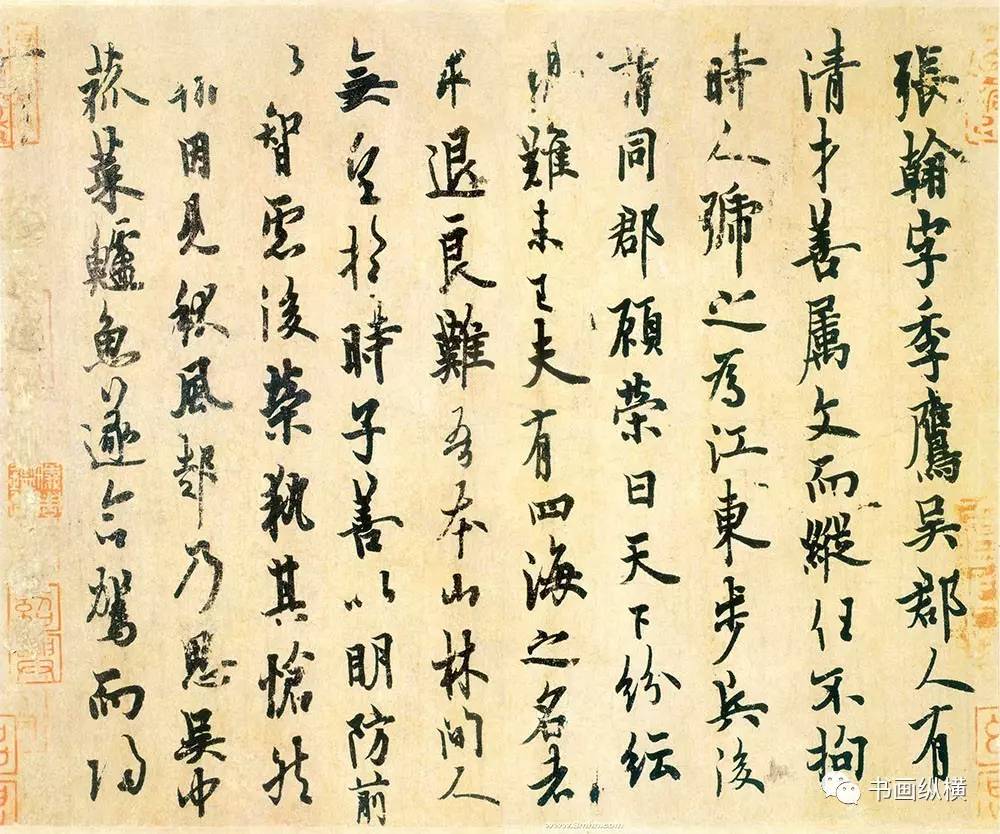 張翰字季鷹吳郡人有
清才善属文而縱任不拘
時人號之爲江東步兵後
謂同郡顧榮曰天下紛紜
難未已夫有四海之名者
求退良難吾本山林間人
無望於時子善以明防前
以智慮後榮執其愴然
翰因見秋風起乃思吳中
菰菜鱸魚遂命駕而歸
书画纵横
www.3mhn.com